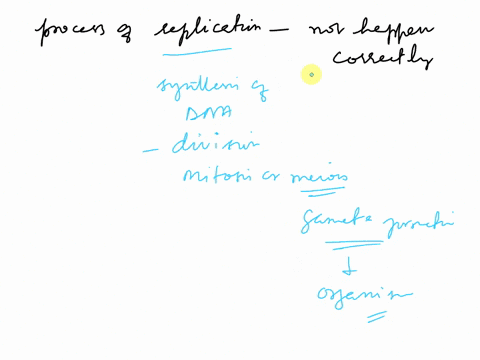 process of replication — not happen
correctly
synthesis of
DNA
— division
mitosis or meiosis
gamete
↓
organism